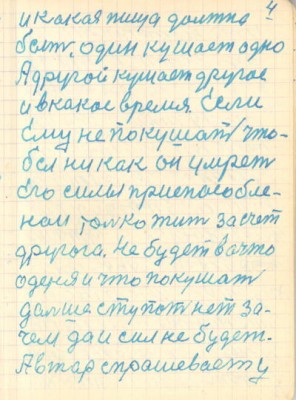 4
и какая пища должна
быт. один кушает одно
А другой кушает другое
и в какое время. Если
Ему не покушат что-
бы ни как он умрет
Его силы приспособле-
ном толко жит за счет
другога. не будет в что
оденя и что покушат
далше ступат нет за-
чем да и сил не будет.
Автар спрашевает у